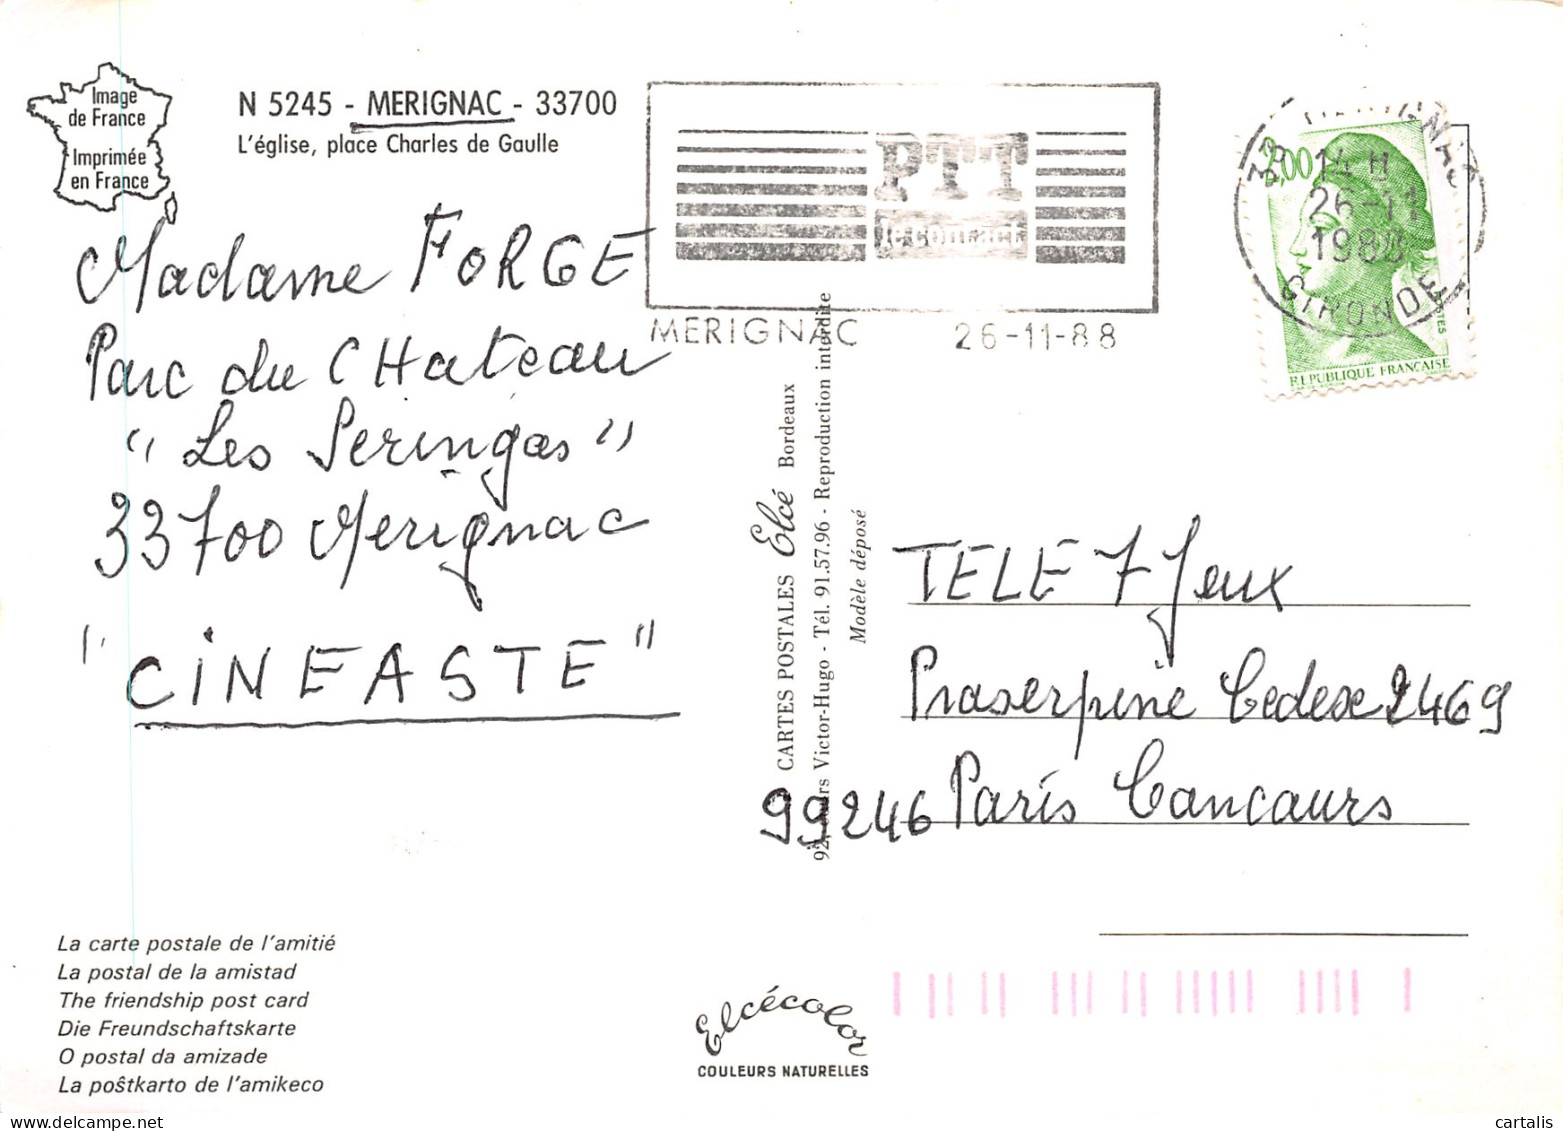 Image
de France
Imprimée
en France
N 5245 - MERIGNAC - 33700
L'église, place Charles de Gaulle
Madame FORGE
Parc du CHateau
"Les Seringas"
33700 Merignac
"CiNEASTE"
PTT
le contact
MERIGNAC 26-11-88
33 MERIGNAC
14 H
26-11
1988
GIRONDE
2,00
POSTES
REPUBLIQUE FRANÇAISE
CARTES POSTALES Elcé Bordeaux
92, cours Victor-Hugo - Tél. 91.57.96 - Reproduction interdite
Modèle déposé
TELE 7 Jeux
Praserpine Cedex 2469
99246 Paris Cancaurs
La carte postale de l'amitié
La postal de la amistad
The friendship post card
Die Freundschaftskarte
O postal da amizade
La poŝtkarto de l'amikeco
Elcécolor
COULEURS NATURELLES
cartalis